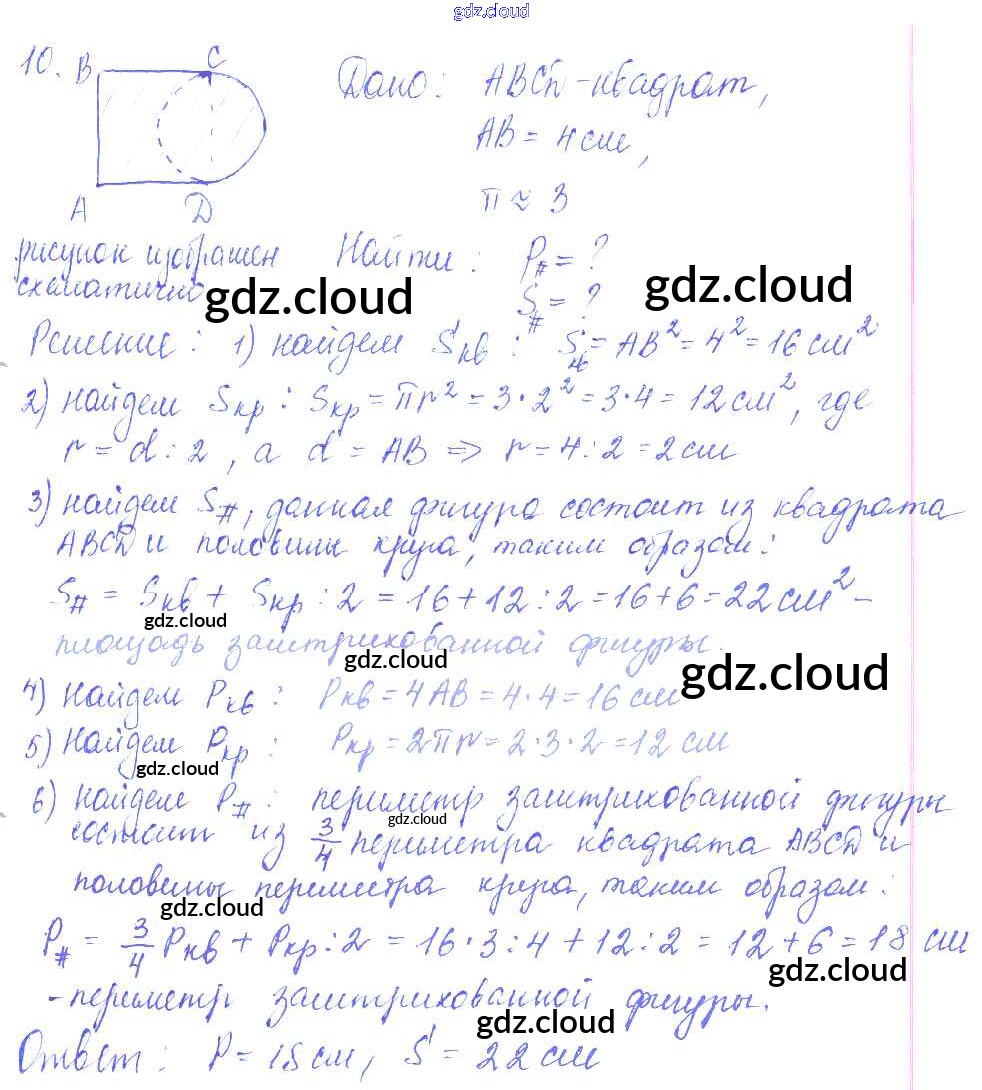 gdz.cloud
10. B C Дано: ABCD - квадрат,
AB = 4 см,
A D π ≈ 3
рисунок изображен Найти: P# = ?
схематично gdz.cloud S# = ? gdz.cloud
Решение: 1) найдем Sкв: Sкв = AB² = 4² = 16 см²
2) найдем Sкр: Sкр = πr² = 3·2² = 3·4 = 12 см², где
r = d:2, а d = AB => r = 4:2 = 2 см
3) найдем S#, данная фигура состоит из квадрата
ABCD и половины круга, таким образом:
S# = Sкв + Sкр:2 = 16+12:2 = 16+6 = 22 см² -
gdz.cloud
площадь заштрихованной фигуры.
gdz.cloud gdz.cloud
4) Найдем Pкв: Pкв = 4AB = 4·4 = 16 см
5) Найдем Pкр: Pкр = 2πr = 2·3·2 = 12 см
gdz.cloud
6) Найдем P#: периметр заштрихованной фигуры
gdz.cloud
состоит из 3/4 периметра квадрата ABCD и
половины периметра круга, таким образом:
gdz.cloud
P# = 3/4 Pкв + Pкр:2 = 16·3:4 + 12:2 = 12+6 = 18 см
gdz.cloud
- периметр заштрихованной фигуры.
gdz.cloud
Ответ: P = 18 см, S = 22 см